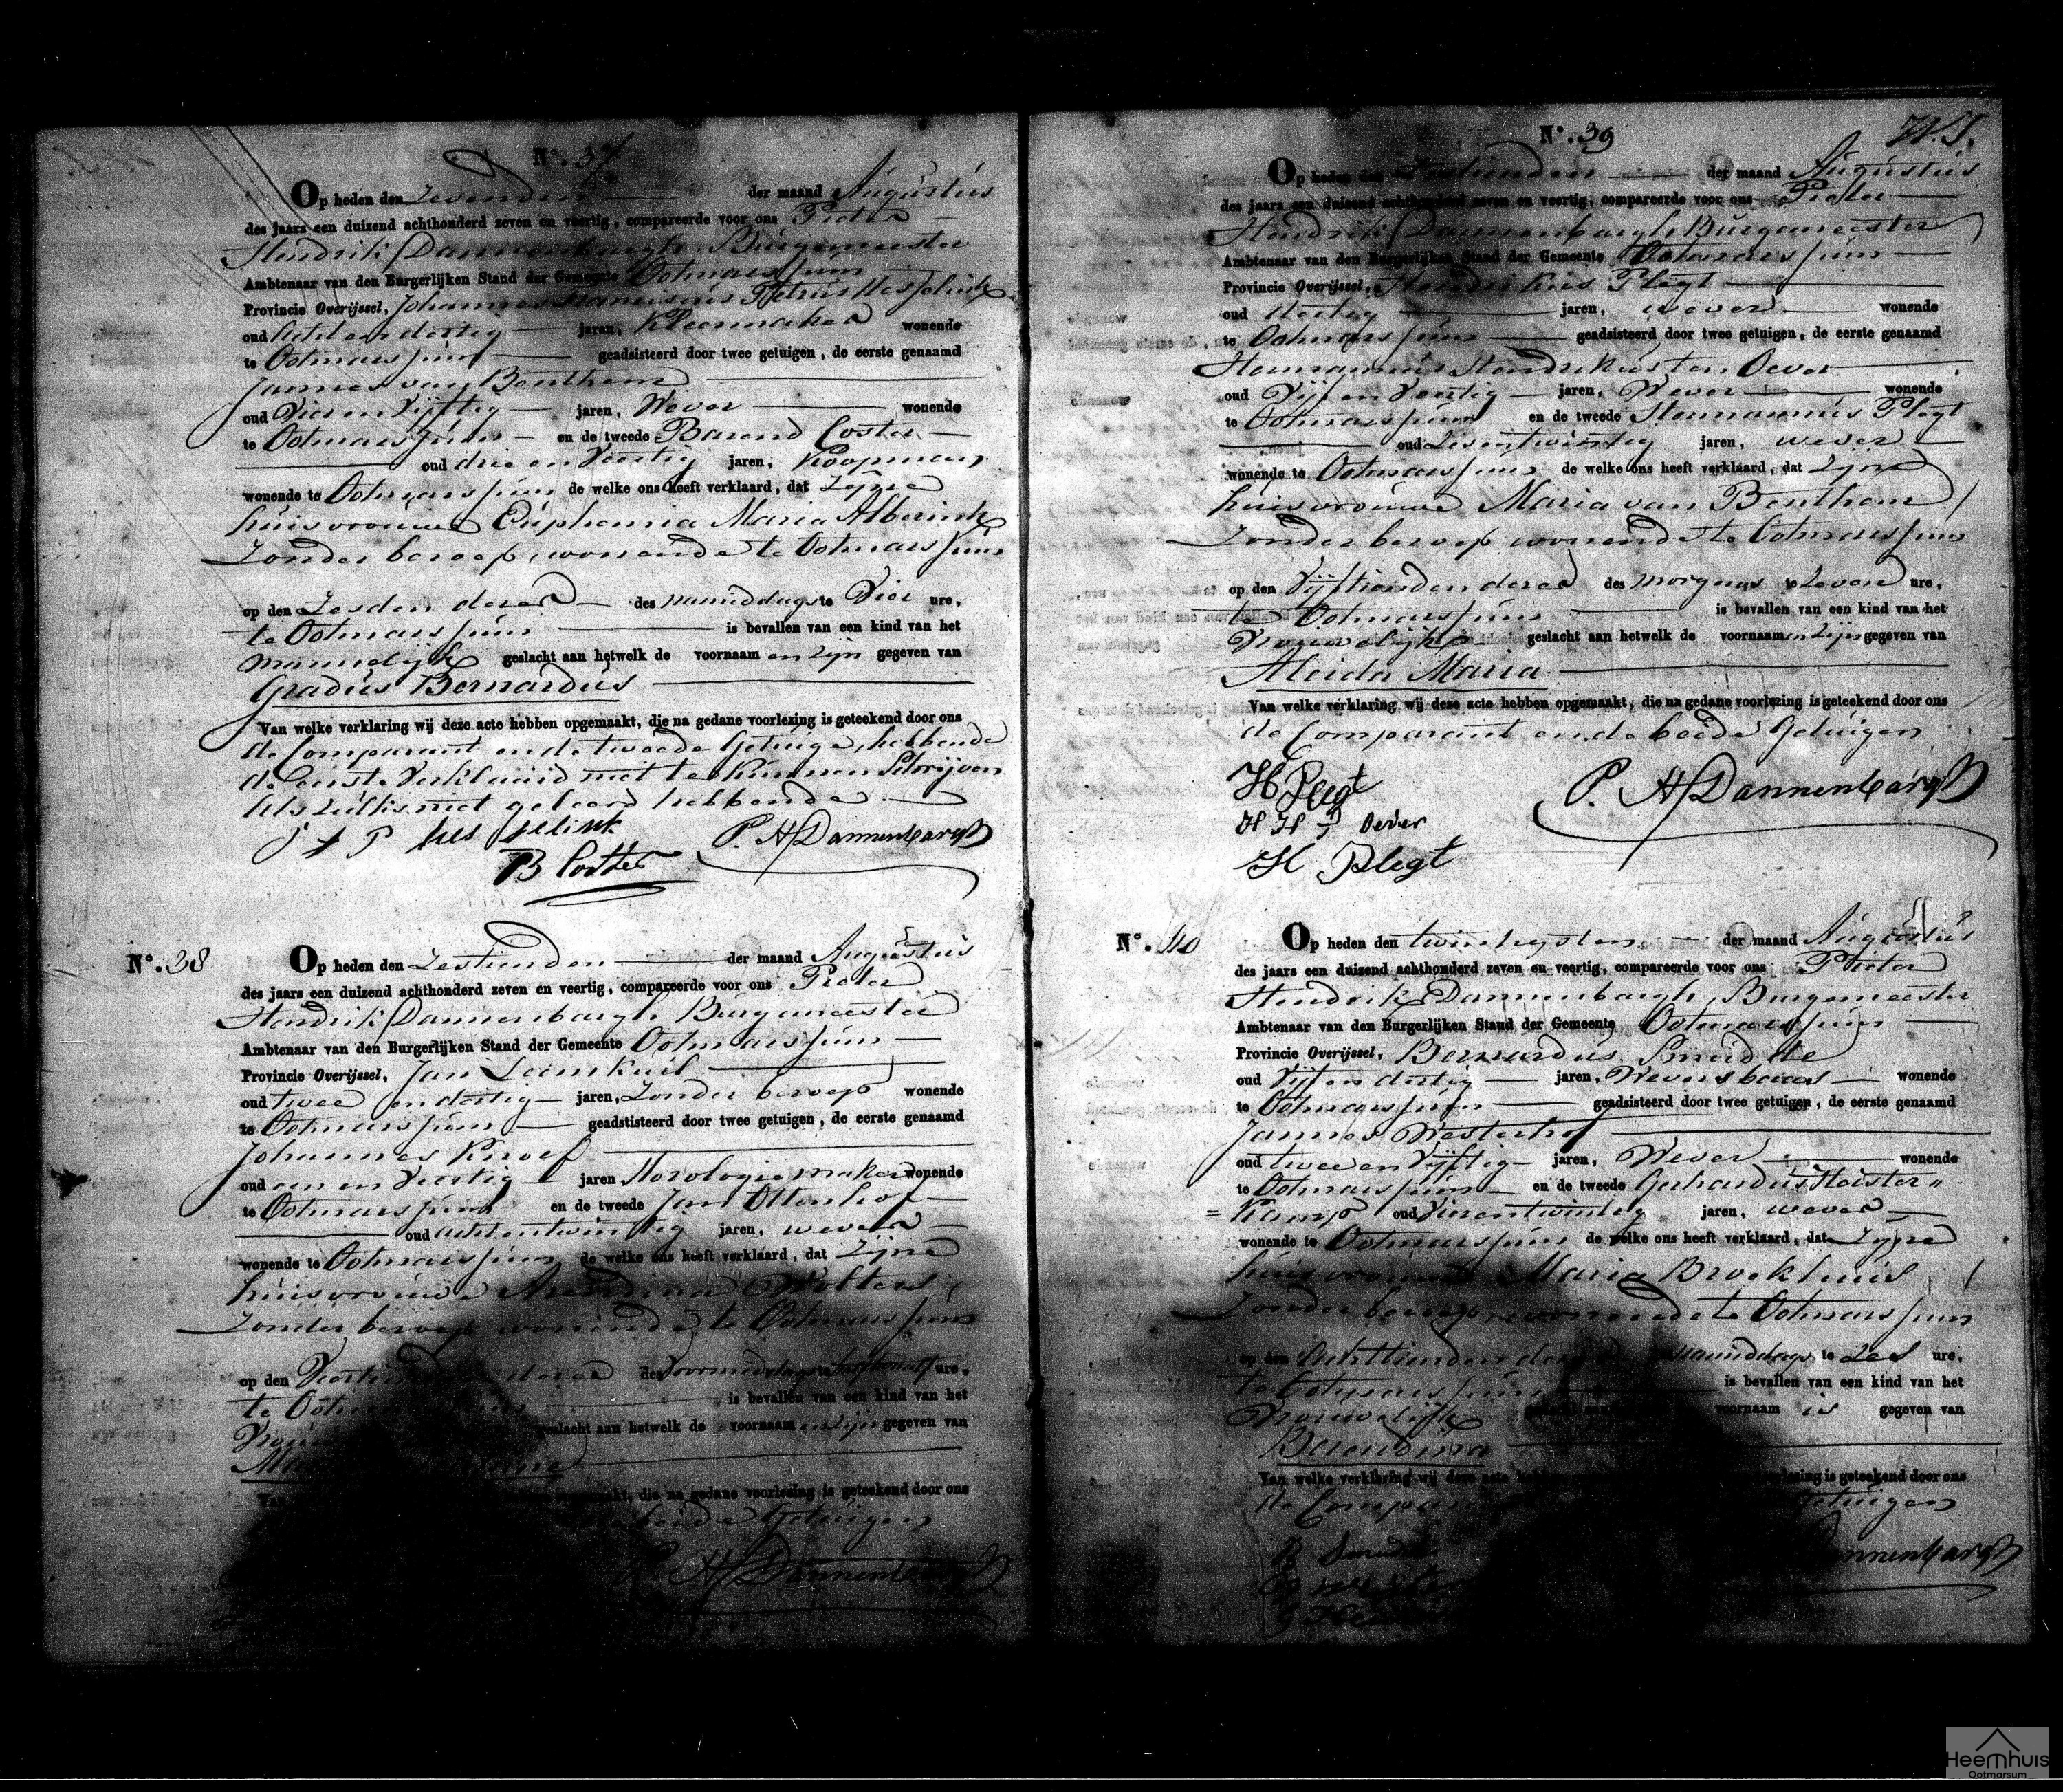 N°. 37
Op heden den Zevenden der maand Augustus
des jaars een duizend achthonderd zeven en veertig, compareerde voor ons Pieter
Hendrik Dannenbargh, Burgemeester
Ambtenaar van den Burgerlijken Stand der Gemeente Ootmarssum
Provincie Overijssel, Johannes Franciscus Petrus Hesselink
oud Acht en dertig jaren, Kleermaker wonende
te Ootmarssum geadsisteerd door twee getuigen, de eerste genaamd
Jannes van Benthem
oud Vier en Vijftig jaren, Wever wonende
te Ootmarssum en de tweede Barend Coster
oud drie en Veertig jaren, Koopman
wonende te Ootmarssum de welke ons heeft verklaard, dat Zijne
huisvrouwe Euphemia Maria Alberink
Zonder beroep, wonende te Ootmarssum
op den Zesden dezer des namiddags te Vier ure,
te Ootmarssum is bevallen van een kind van het
mannelijk geslacht aan hetwelk de voornaamen zijn gegeven van
Gradus Bernardus
Van welke verklaring wij deze acte hebben opgemaakt, die na gedane voorlezing is geteekend door ons
de Comparant en de tweede Getuige, hebbende
de Eerste Verklaard niet te kunnen Schrijven
als zulks niet geleerd hebbende
J F P Hesselink
P. H Dannenbargh
B Coster
N°. 38
Op heden den Zestienden der maand Augustus
des jaars een duizend achthonderd zeven en veertig, compareerde voor ons Pieter
Hendrik Dannenbargh Burgemeester
Ambtenaar van den Burgerlijken Stand der Gemeente Ootmarssum
Provincie Overijssel, Jan Leimkuil
oud twee en dertig jaren, Zonder beroep wonende
te Ootmarssum geadsisteerd door twee getuigen, de eerste genaamd
Johannes Knoef
oud een en Veertig jaren Horologiemaker wonende
te Ootmarssum en de tweede Jan Ottenhof
oud achtentwintig jaren, wever
wonende te Ootmarssum de welke ons heeft verklaard, dat Zijne
huisvrouwe Arendina Wolters,
Zonder beroep wonende te Ootmarssum
op den dezer des voormiddags te ure,
te is bevallen van een kind van het
geslacht aan hetwelk de voornaamen zijn gegeven van
die na gedane voorlezing is geteekend door ons
beide Getuigen
H Dannenbargh
N°. 39
Op heden den Zestienden der maand Augustus
des jaars een duizend achthonderd zeven en veertig, compareerde voor ons Pieter
Hendrik Dannenbargh Burgemeester
Ambtenaar van den Burgerlijken Stand der Gemeente Ootmarssum
Provincie Overijssel, Hendrikus Plegt
oud dertig jaren, wever wonende
te Ootmarssum geadsisteerd door twee getuigen, de eerste genaamd
Hermannus Hendrikus ten Oever
oud Vijf en Veertig jaren, Wever wonende
te Ootmarssum en de tweede Hermannus Plegt
oud Zesentwintig jaren, wever
wonende te Ootmarssum de welke ons heeft verklaard, dat Zijne
huisvrouwe Maria van Benthem
Zonder beroep wonende te Ootmarssum
op den Vijftienden dezer des morgens te Zeven ure,
te Ootmarssum is bevallen van een kind van het
Vrouwelijke geslacht aan hetwelk de voornaamen zijn gegeven van
Aleida Maria
Van welke verklaring wij deze acte hebben opgemaakt, die na gedane voorlezing is geteekend door ons
de Comparant en de beide Getuigen
H Plegt
P. H Dannenbargh
H H T Oever
H Plegt
N°. 40
Op heden den twintigsten der maand Augustus
des jaars een duizend achthonderd zeven en veertig, compareerde voor ons Pieter
Hendrik Dannenbargh, Burgemeester
Ambtenaar van den Burgerlijken Stand der Gemeente Ootmarssum
Provincie Overijssel, Bernardus Smidtte
oud Vijf en dertig jaren, Weversbaas wonende
te Ootmarssum geadsisteerd door twee getuigen, de eerste genaamd
Jannes Westerhof
oud twee en Vijftig jaren, Wever wonende
te Ootmarssum en de tweede Gerhardus Heister"
= Kamp oud Vierentwintig jaren, wever
wonende te Ootmarssum de welke ons heeft verklaard, dat Zijne
huisvrouwe Maria Broekhuis
Zonder beroep, wonende te Ootmarssum
op den Achttienden namiddags te Zes ure,
te Ootmarssum is bevallen van een kind van het
Vrouwelijk voornaam is gegeven van
Berendina
Van welke verklaring wij deze acte geteekend door ons
de Getuigen
Dannenbargh
Heemhuis
Ootmarsum